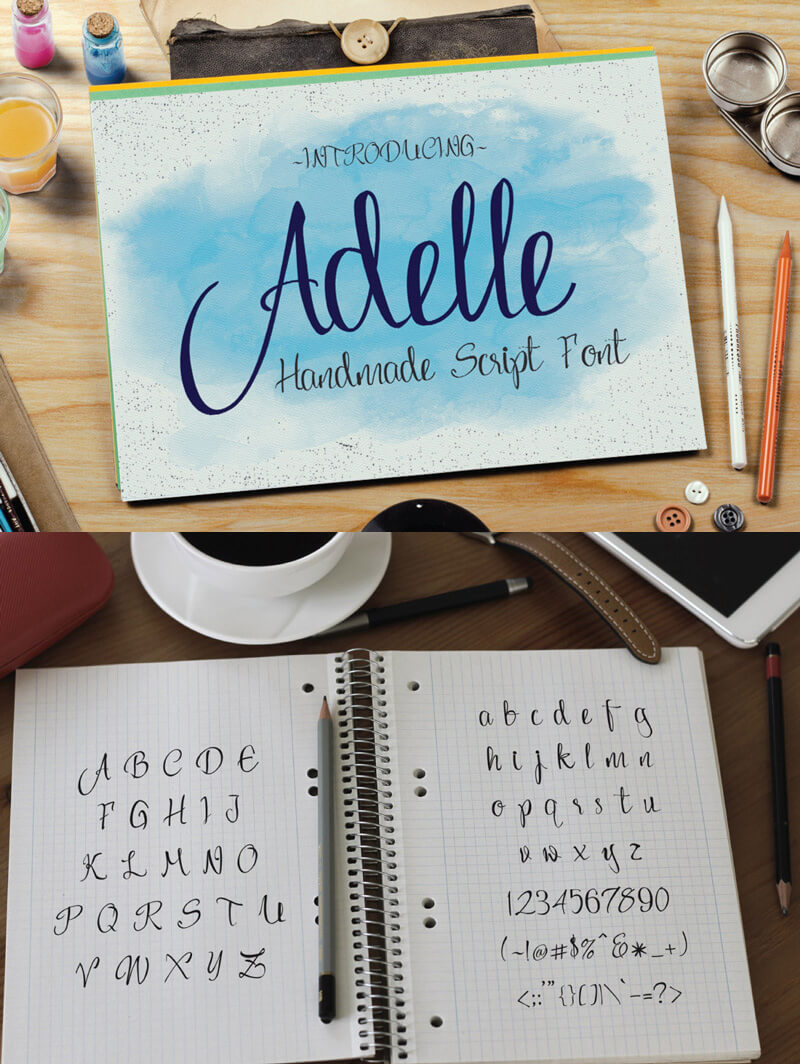 ~INTRODUCING~
Adelle
Handmade Script Font
A B C D E
F G H I J
K L M N O
P Q R S T U
V W X Y Z
a b c d e f g
h i j k l m n
o p q r s t u
v w x y z
1234567890
(~!@#$%^&*_+)
<;:'"{}[]|\`-=?>